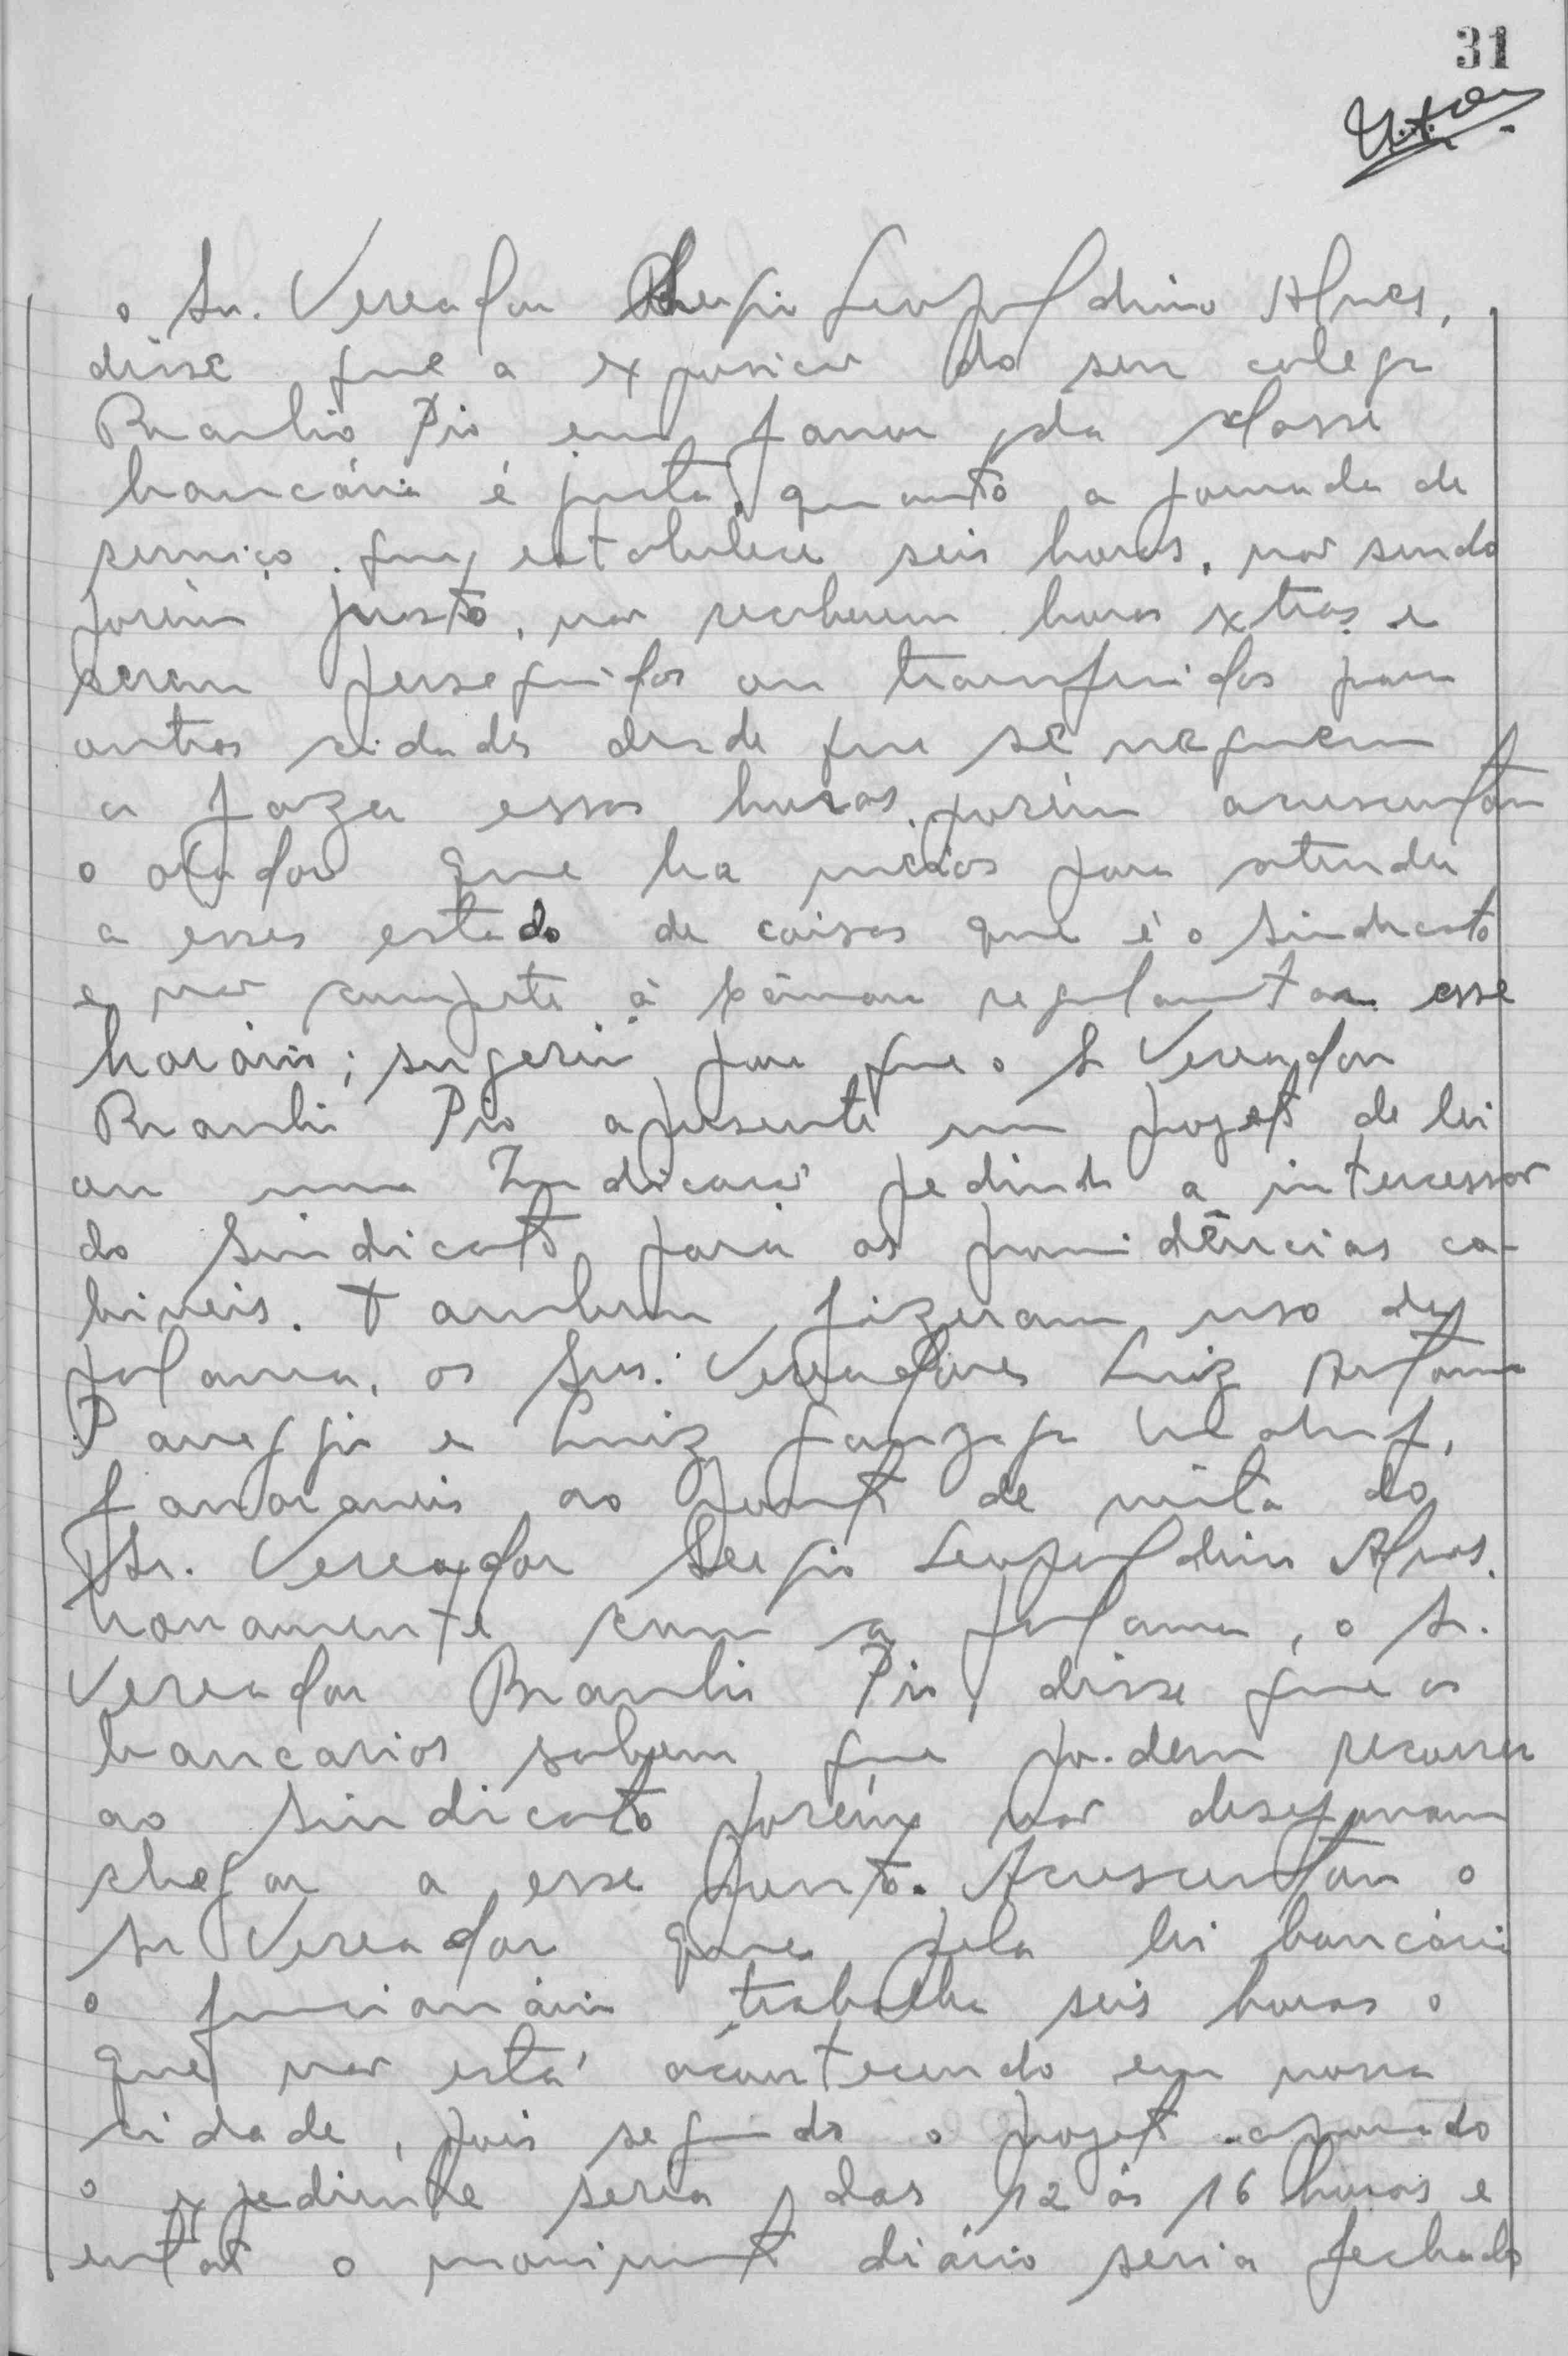 31
o Sr. Vereador Sergio Leopoldino Alves,
disse que a exposicão do seu colega
Braulio Pio em favor da classe
bancária é justa, quanto a jornada de
serviço que estabelece seis horas, não sendo
porém justo, não receberem horas extras e
serem perseguidos ou transferidos para
outras cidades desde que se neguem
a fazer essas horas, porém acrescentou
o orador que ha meios para atender
a esses estado de coisas que é o Sindicato
e não compete à Câmara regulamentar esse
horário; sugeriu para que o Sr Vereador
Braulio Pio apresente um projeto de lei
ou uma Indicacão pedindo a intercessão
do Sindicato para as providências ca-
biveis. Tambem fizeram uso da
palavra, os Srs. Vereadores Luiz Antonio
e Luiz Gonzaga
favoraveis ao ponto de vista do
Sr. Vereador Sergio Leopoldino Alves.
Novamente com a palavra, o Sr.
Vereador Braulio Pio, disse que os
bancarios sabem que podem recorrer
ao Sindicato porém não desejavam
chegar a esse ponto. Acrescentou o
Sr Vereador que pela lei bancária
o funcionário trabalha seis horas o
que não está acontecendo em nossa
cidade, pois segundo o projeto aprovado
o expediente seria das 12 ás 16 horas e
então o movimento diário seria fechado